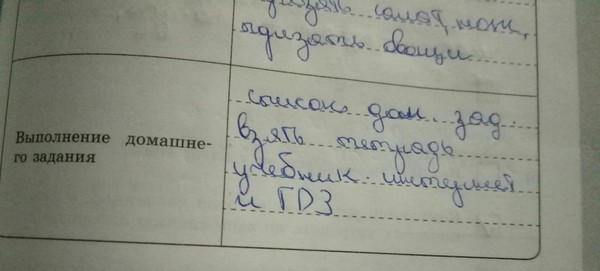 салат, нож,
овощи
Выполнение домашне-
го задания
список дом. зад.
взять тетрадь
учебник. интернет
и ГДЗ